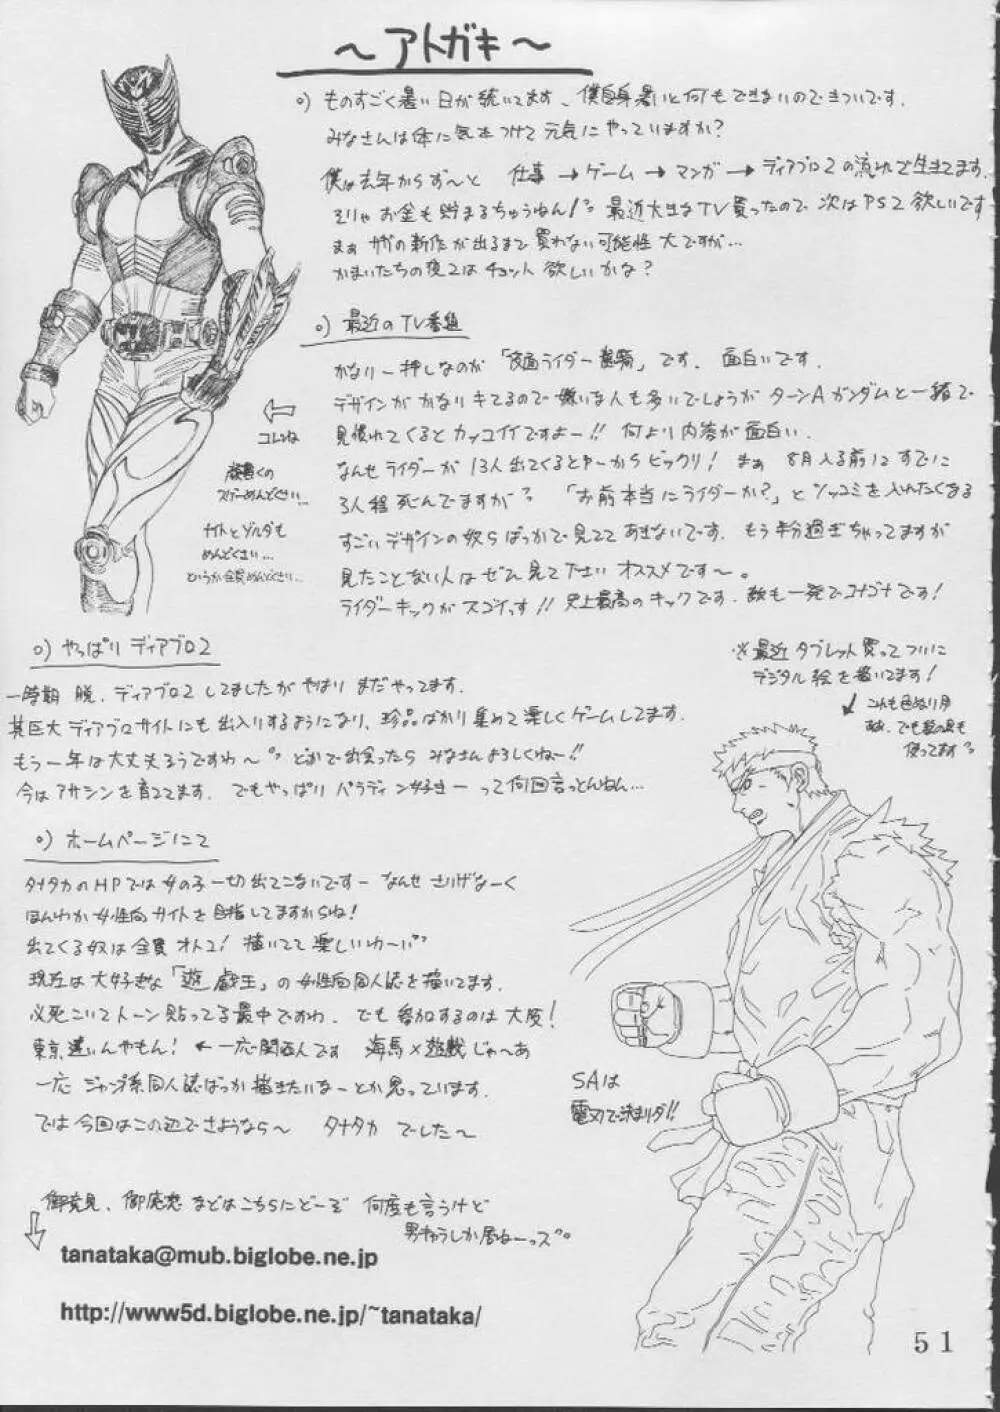 ～アトガキ～
○) ものすごく暑い日が続いてます、僕自身暑いと何もできないのできついです。
みなさんは体に気をつけて元気にやっていますか？
僕は去年からず〜っと 仕事→ゲーム→マンガ→ディアブロ2の流れで生きてます。
そりゃお金も貯まるちゅうねん！ 最近大きなTV買ったので次はPS2欲しいです
まぁ サガの新作が出るまで買わない可能性大ですが…
かまいたちの夜2はチョット欲しいかな？
○) 最近のTV番組
かなり一押しなのが「仮面ライダー龍騎」です。面白いです。
デザインがかなりキてるので嫌いな人も多いでしょうがターンAガンダムと一緒で
見慣れてくるとカッコイイですよー!! 何より内容が面白い。
なんせライダーが13人出てくるとゆーからビックリ！ まぁ 8月入る前にすでに
3人程死んでますが 「お前本当にライダーか？」とツッコミを入れたくなる
すごいデザインの奴らばっかで見ててあきないです。もう半分過ぎちゃってますが
見たことない人はぜひ見て下さい オススメです〜。
ライダーキックがスゴイっす!! 史上最高のキックです。敵も一発でコナゴナです！
コレいね
龍騎くの
スゲーめんどくさい…
ナイトとゾルダも
めんどくさい…
というか全員めんどくさい…
○) やっぱり ディアブロ2
一時期 脱、ディアブロ2してましたがやはり まだやってます。
某巨大ディアブロサイトにも出入りするようになり、珍品ばかり集めて楽しくゲームしてます。
もう一年は大丈夫そうですわ〜 どこかで出会ったら みなさんよろしくねー!!
今はアサシンを育ててます。でもやっぱり パラディン好きーって何回言っとんねん…
※最近 タブレット買って ついに
デジタル絵を描いてます！
これも色ぬり用
使ってます
○) ホームページにて
タナタカのHPでは女の子一切出てこないですー なんせ さりげなーく
ほんわか女性向サイトを目指してますからね！
出てくる奴は全員オトコ！ 描いてて楽しいわー
現在は大好きな「遊戯王」の女性向同人誌を描いてます。
必死こいてトーン貼ってる最中ですわ。でも参加するのは大阪！
東京遠いんやもん！ ←一応関西人です 海馬×遊戯じゃ〜あ
一応 ジャンプ系同人誌ばっか描きたいなーとか思っています。
では今回はこの辺でさようなら〜 タナタカ でした〜
SAは
電刃で決まりダ!!
御意見、御感想 などはこちらにどーぞ 何度も言うけど
男キャラしか居ねーっス
tanataka@mub.biglobe.ne.jp
http://www5d.biglobe.ne.jp/~tanataka/
51